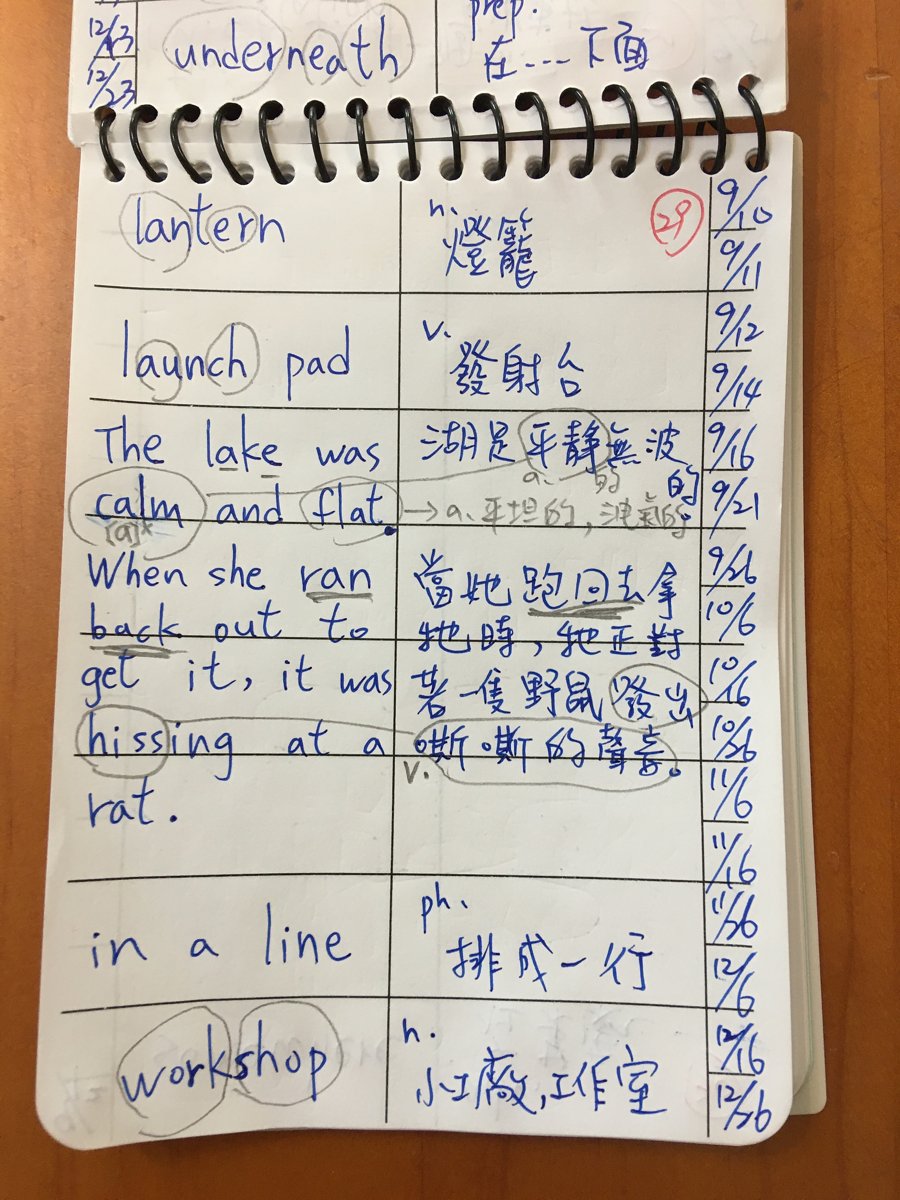 12/13
12/23
underneath
prep.
在....下面
lantern
n.
燈籠
29
9/10
9/11
launch pad
v.
發射台
9/12
9/14
The lake was
calm and flat.
[a]
湖是平靜無波
的。
a. 一的
→a. 平坦的, 洩氣的
9/16
9/21
When she ran
back out to
get it, it was
hissing at a
rat.
當她跑回去拿
牠時,牠正對
著一隻野鼠發出
嘶嘶的聲音。
v.
9/26
10/6
10/16
10/26
11/6
11/16
in a line
ph.
排成一行
11/26
12/6
workshop
n.
小工廠,工作室
12/16
12/26